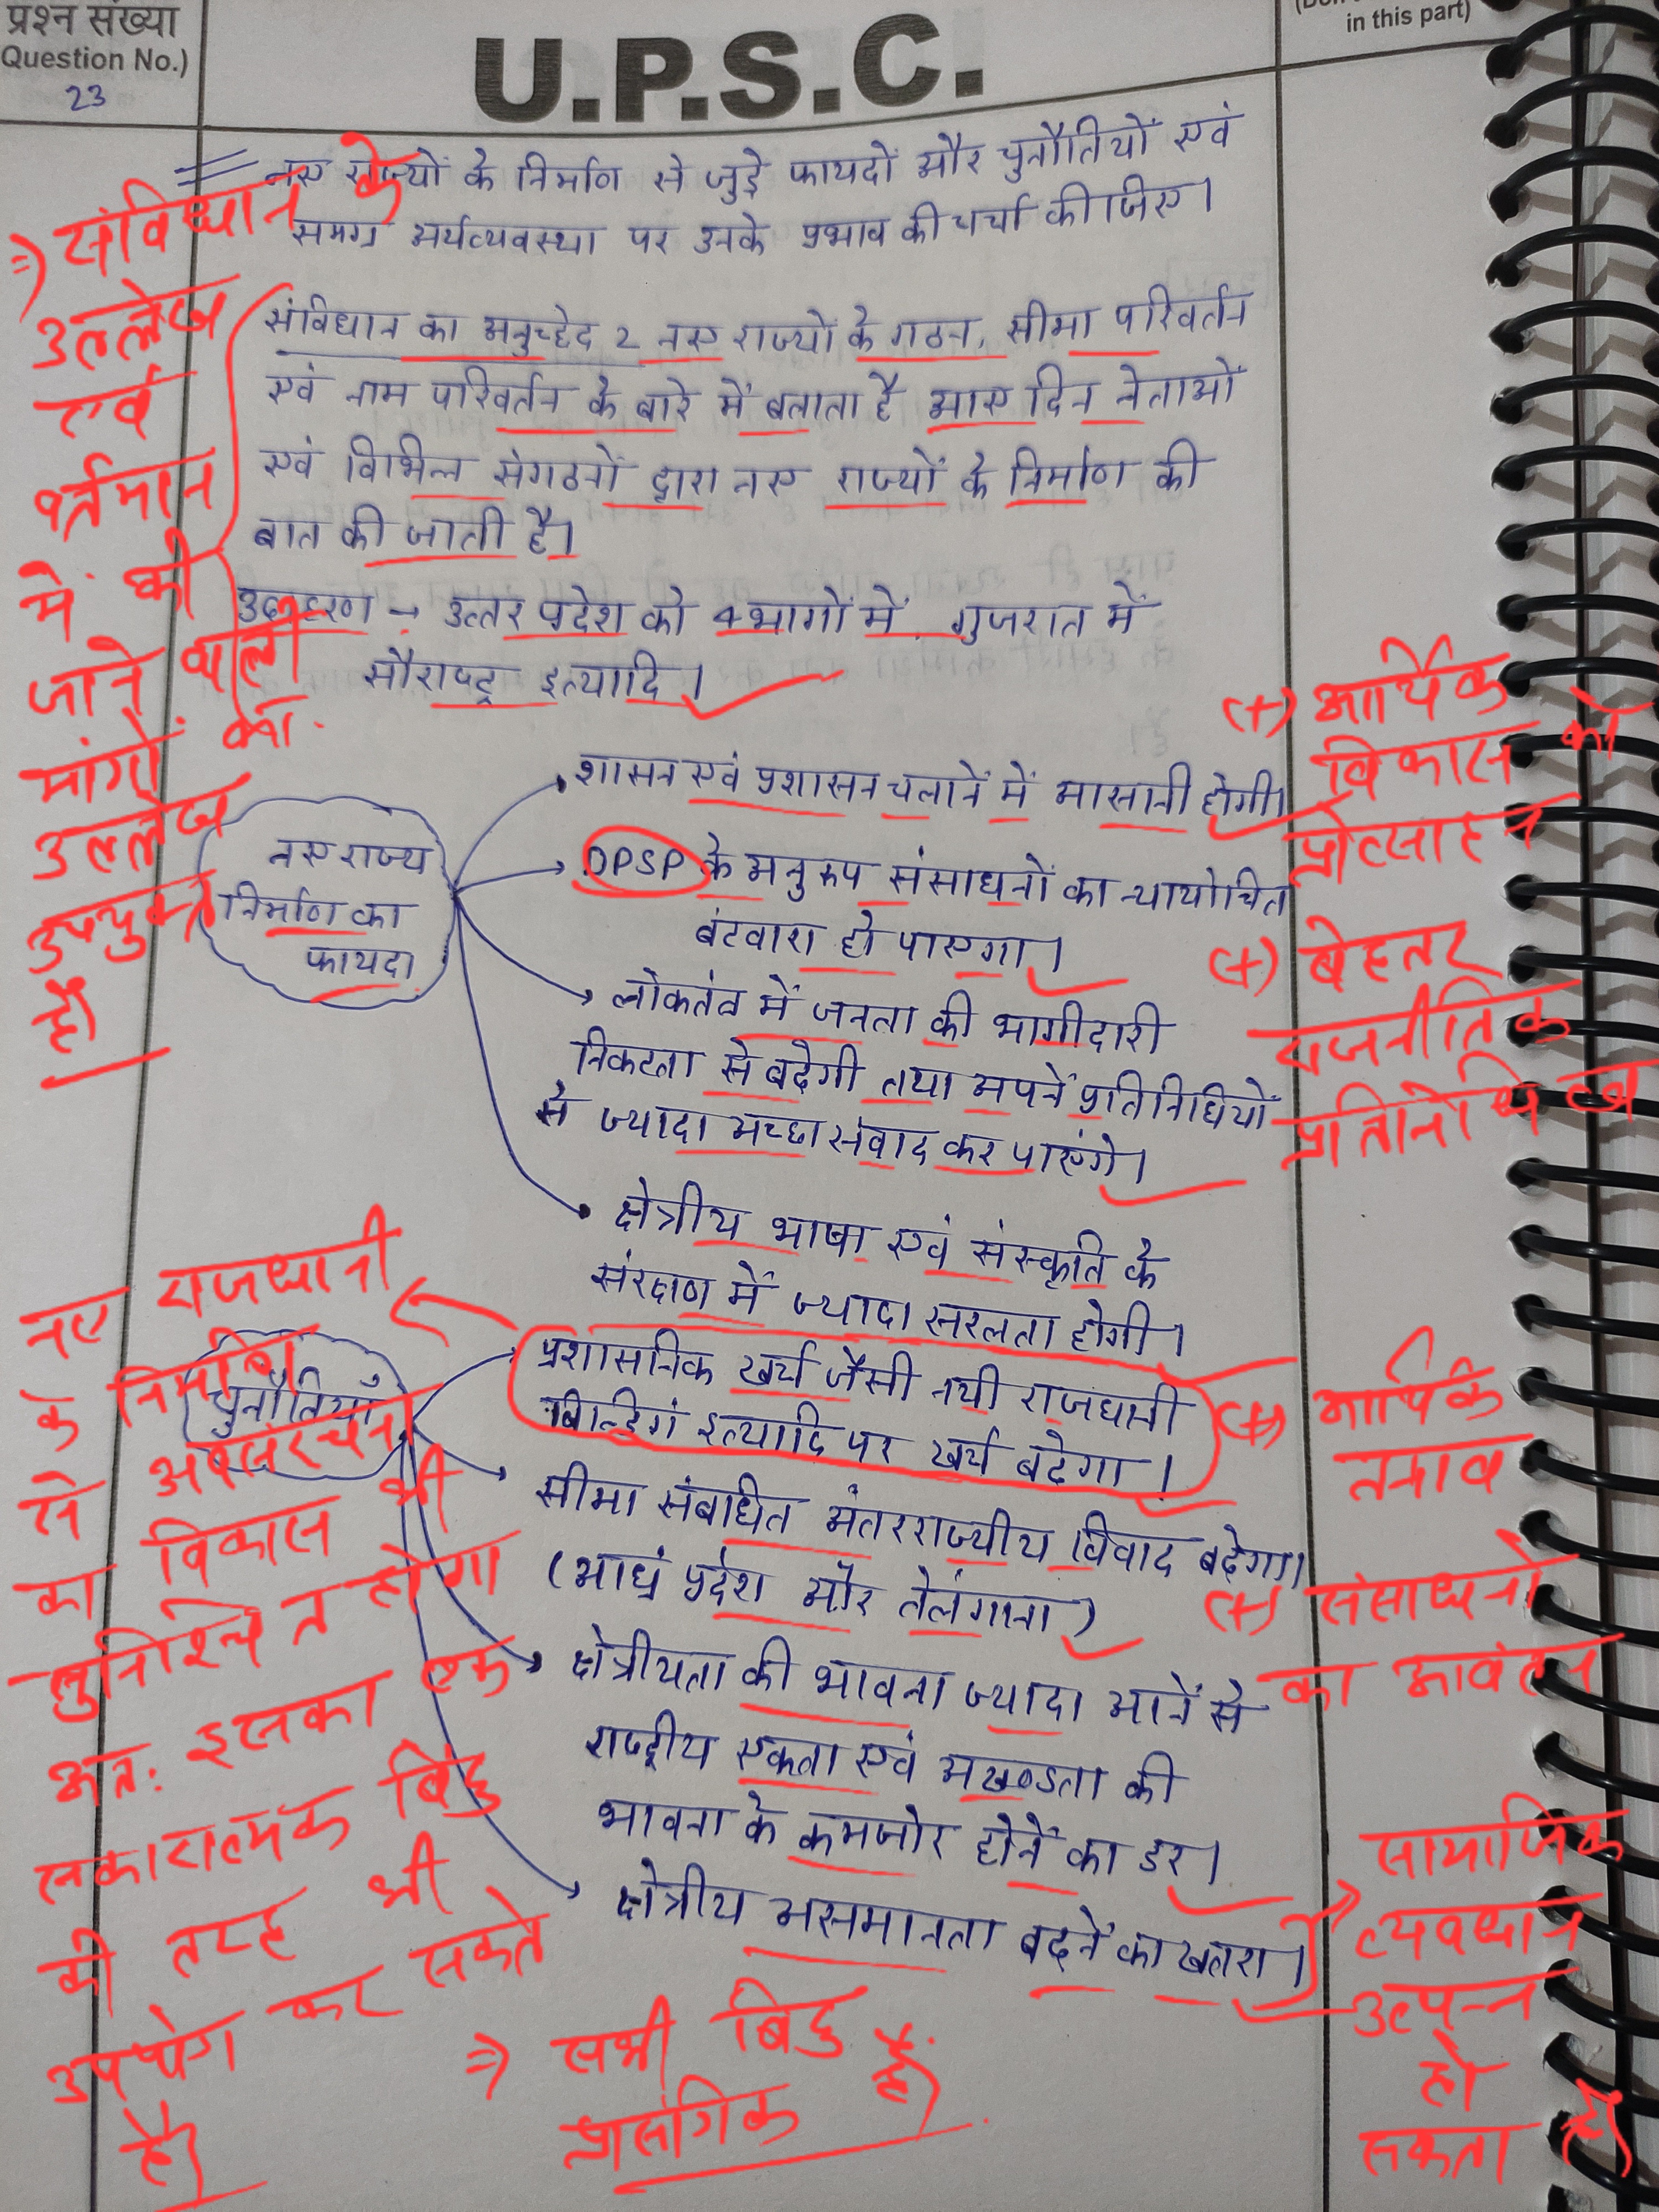 प्रश्न संख्या
(Question No.)
23
U.P.S.C.
in this part)
नए राज्यों के निर्माण से जुड़े फायदों और चुनौतियों एवं
समग्र अर्थव्यवस्था पर उनके प्रभाव की चर्चा कीजिए।
संविधान का अनुच्छेद 2 नए राज्यों के गठन, सीमा परिवर्तन
एवं नाम परिवर्तन के बारे में बताता है आए दिन नेताओं
एवं विभिन्न संगठनों द्वारा नए राज्यों के निर्माण की
बात की जाती है।
उदाहरण → उत्तर प्रदेश को 4 भागों में, गुजरात में
सौराष्ट्र इत्यादि।
=> संविधान के
उल्लेख
एवं
वर्तमान
में की
जाने वाली
मांगों का
उल्लेख
उपयुक्त
है।
नए राज्य
निर्माण का
फायदा
शासन एवं प्रशासन चलानें में आसानी होगी।
DPSP के अनुरूप संसाधनों का न्यायोचित
बंटवारा हो पाएगा।
लोकतंत्र में जनता की भागीदारी
निकटता से बढ़ेगी तथा अपनें प्रतिनिधियों
से ज्यादा अच्छा संवाद कर पाएंगे।
क्षेत्रीय भाषा एवं संस्कृति के
संरक्षण में ज्यादा सरलता होगी।
(+) आर्थिक
विकास को
प्रोत्साहन
(+) बेहतर
राजनीतिक
प्रतिनिधित्व
चुनौतियाँ
प्रशासनिक खर्च जैसी नयी राजधानी
बिल्डिगं इत्यादि पर खर्च बढेगा।
सीमा संबंधित अंतरराज्यीय विवाद बढ़ेगा।
(आध्रं प्रदेश और तेलंगाना)
क्षेत्रीयता की भावना ज्यादा आनें से
राष्ट्रीय एकता एवं अखण्डता की
भावना के कमजोर होनें का डर।
क्षेत्रीय असमानता बढ़नें का खतरा।
नए राजधानी
के निर्माण
से अवसंरचना
का विकास भी
सुनिश्चित होगा
अतः इसका एक
सकारात्मक बिंदु
की तरह भी
उपयोग कर सकते
है।
(+) आर्थिक
तनाव
(+) संसाधनों
का आवंटन
सामाजिक
व्यवधान
उत्पन्न
हो
सकता है।
=> सभी बिंदु
प्रासंगिक हैं।